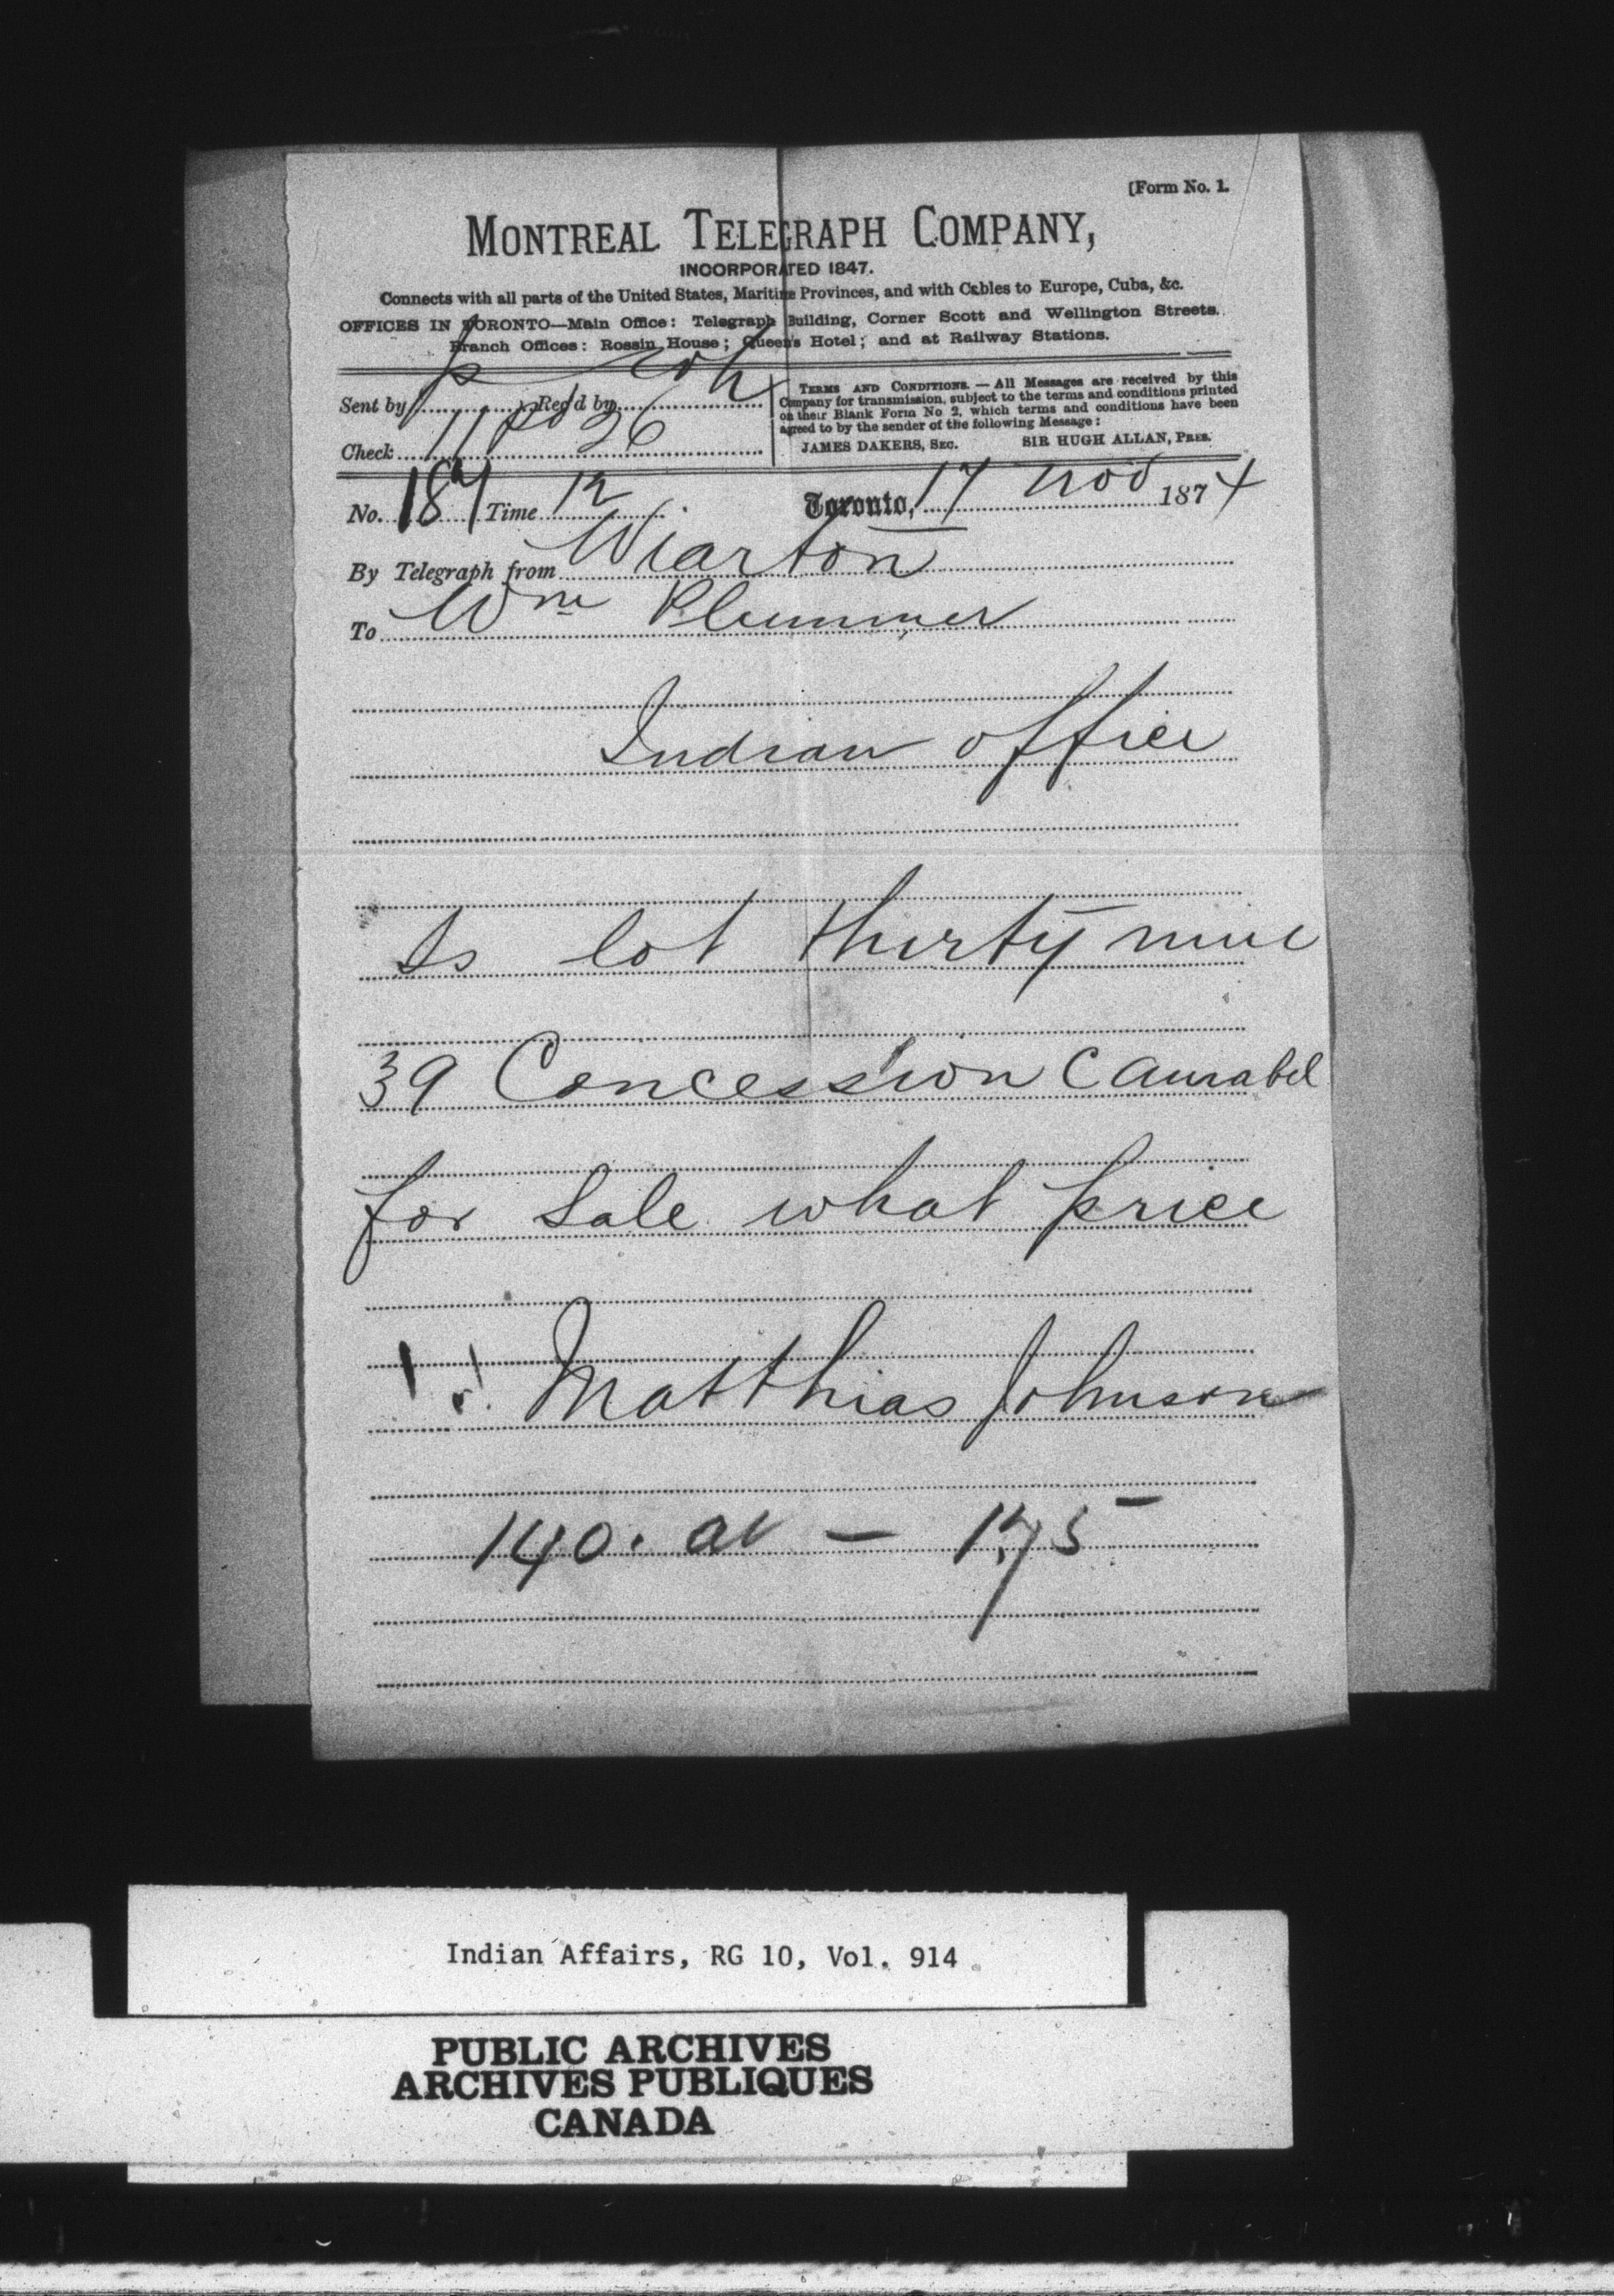 [Form No. 1.
MONTREAL TELEGRAPH COMPANY,
INCORPORATED 1847.
Connects with all parts of the United States, Maritime Provinces, and with Cables to Europe, Cuba, &c.
OFFICES IN TORONTO—Main Office: Telegraph Building, Corner Scott and Wellington Streets.
Branch Offices: Rossin House; Queen's Hotel; and at Railway Stations.
Sent by Rec'd by
Check 11 26
TERMS AND CONDITIONS. — All Messages are received by this
Company for transmission, subject to the terms and conditions printed
on their Blank Form No 2, which terms and conditions have been
agreed to by the sender of the following Message:
JAMES DAKERS, SEC. SIR HUGH ALLAN, PRES.
No. 187 Time 12 Toronto, 17 Nov 1874
By Telegraph from Wiarton
To Wm Plummer
Indian office
Is lot thirty nine
39 Concession C Amabel
for Sale what price
Matthias Johnson
140. ac — 1.75
Indian Affairs, RG 10, Vol. 914
PUBLIC ARCHIVES
ARCHIVES PUBLIQUES
CANADA